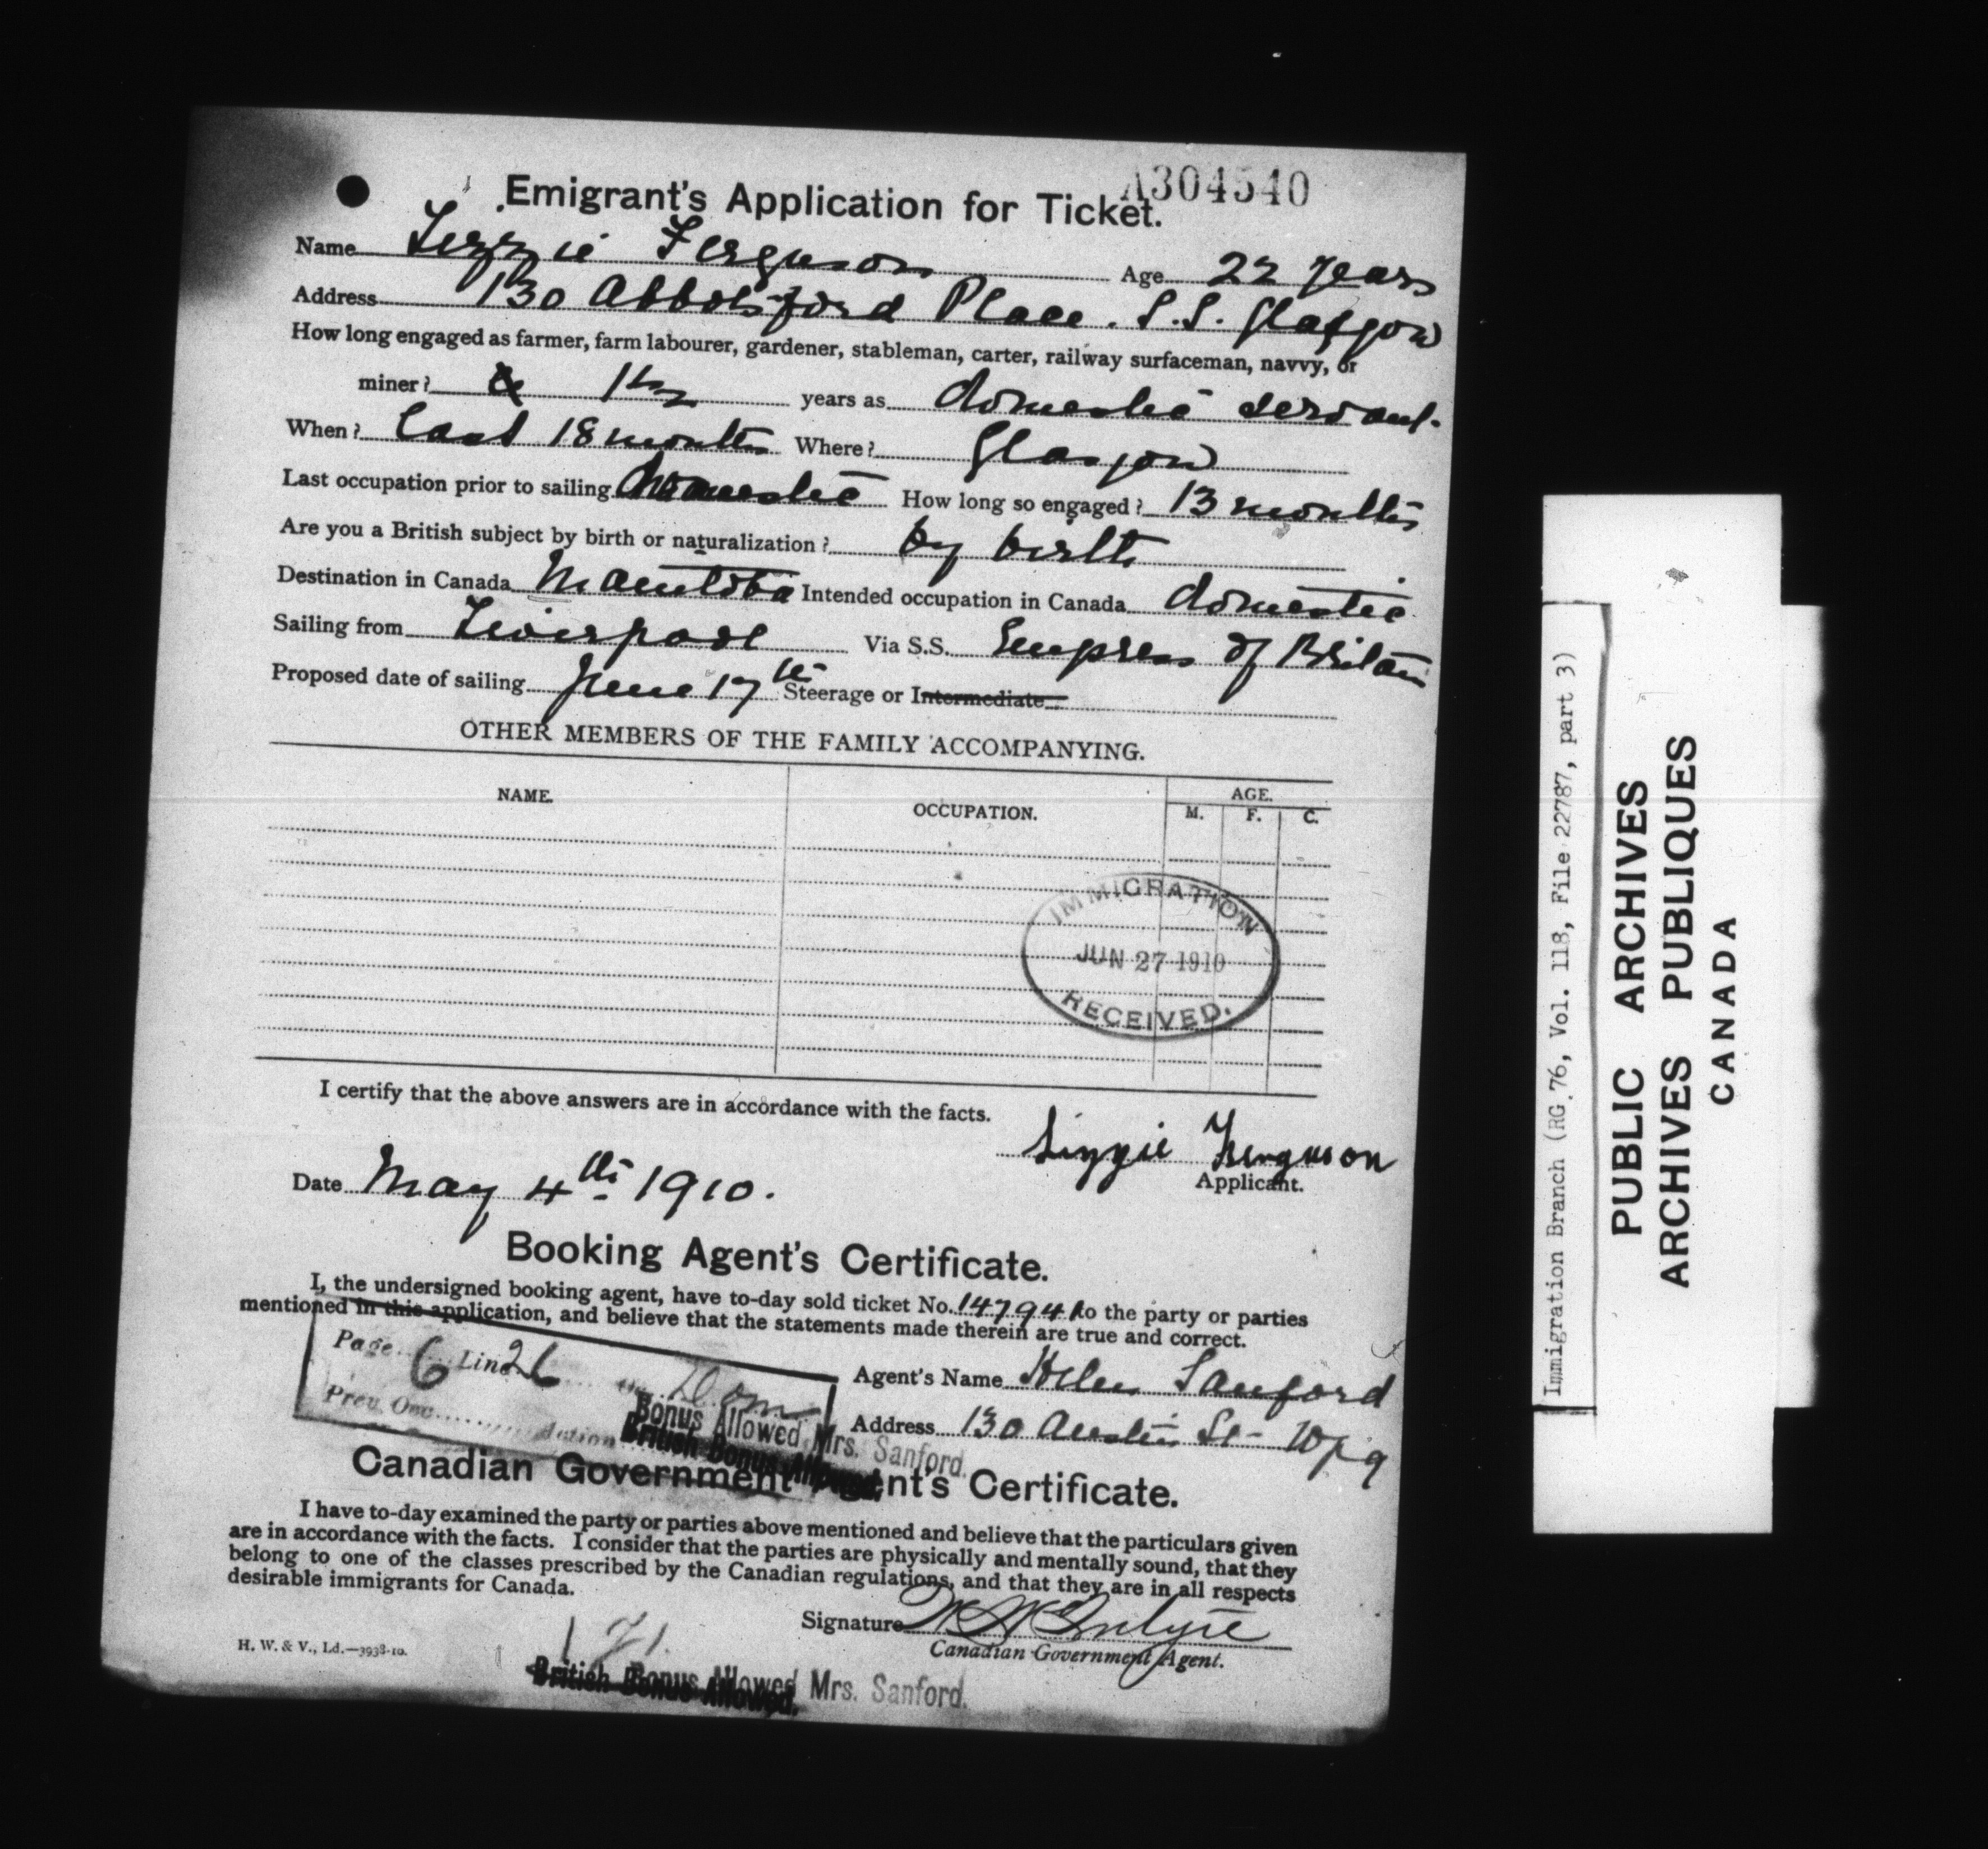 A304540
Emigrant's Application for Ticket.
Name Lizzie Ferguson Age 22 years
Address 130 Abbotsford Place. S.S. Glasgow
How long engaged as farmer, farm labourer, gardener, stableman, carter, railway surfaceman, navvy, or
miner? 1½ years as domestic servant.
When? Last 18 months Where? Glasgow
Last occupation prior to sailing Domestic How long so engaged? 13 months
Are you a British subject by birth or naturalization? by birth
Destination in Canada Manitoba Intended occupation in Canada domestic
Sailing from Liverpool Via S.S. Empress of Britain
Proposed date of sailing June 17th Steerage or Intermediate
OTHER MEMBERS OF THE FAMILY ACCOMPANYING.
NAME. OCCUPATION. AGE.
M. F. C.
IMMIGRATION
JUN 27 1910
RECEIVED.
I certify that the above answers are in accordance with the facts.
Lizzie Ferguson
Applicant.
Date May 4th 1910.
Booking Agent's Certificate.
I, the undersigned booking agent, have to-day sold ticket No. 147941 to the party or parties
mentioned in this application, and believe that the statements made therein are true and correct.
Page 6 Line 26 Dom
Prev. Occ.
Agent's Name Helen Sanford
Address 130 Austin St- Wpg
Bonus Allowed Mrs. Sanford.
British Bonus Allowed.
Canadian Government Agent's Certificate.
I have to-day examined the party or parties above mentioned and believe that the particulars given
are in accordance with the facts. I consider that the parties are physically and mentally sound, that they
belong to one of the classes prescribed by the Canadian regulations, and that they are in all respects
desirable immigrants for Canada.
Signature
Canadian Government Agent.
H. W. & V., Ld.—3938-10.
Bonus Allowed Mrs. Sanford.
British Bonus Allowed.
Immigration Branch (RG 76, Vol. 118, File 22787, part 3)
PUBLIC ARCHIVES
ARCHIVES PUBLIQUES
CANADA